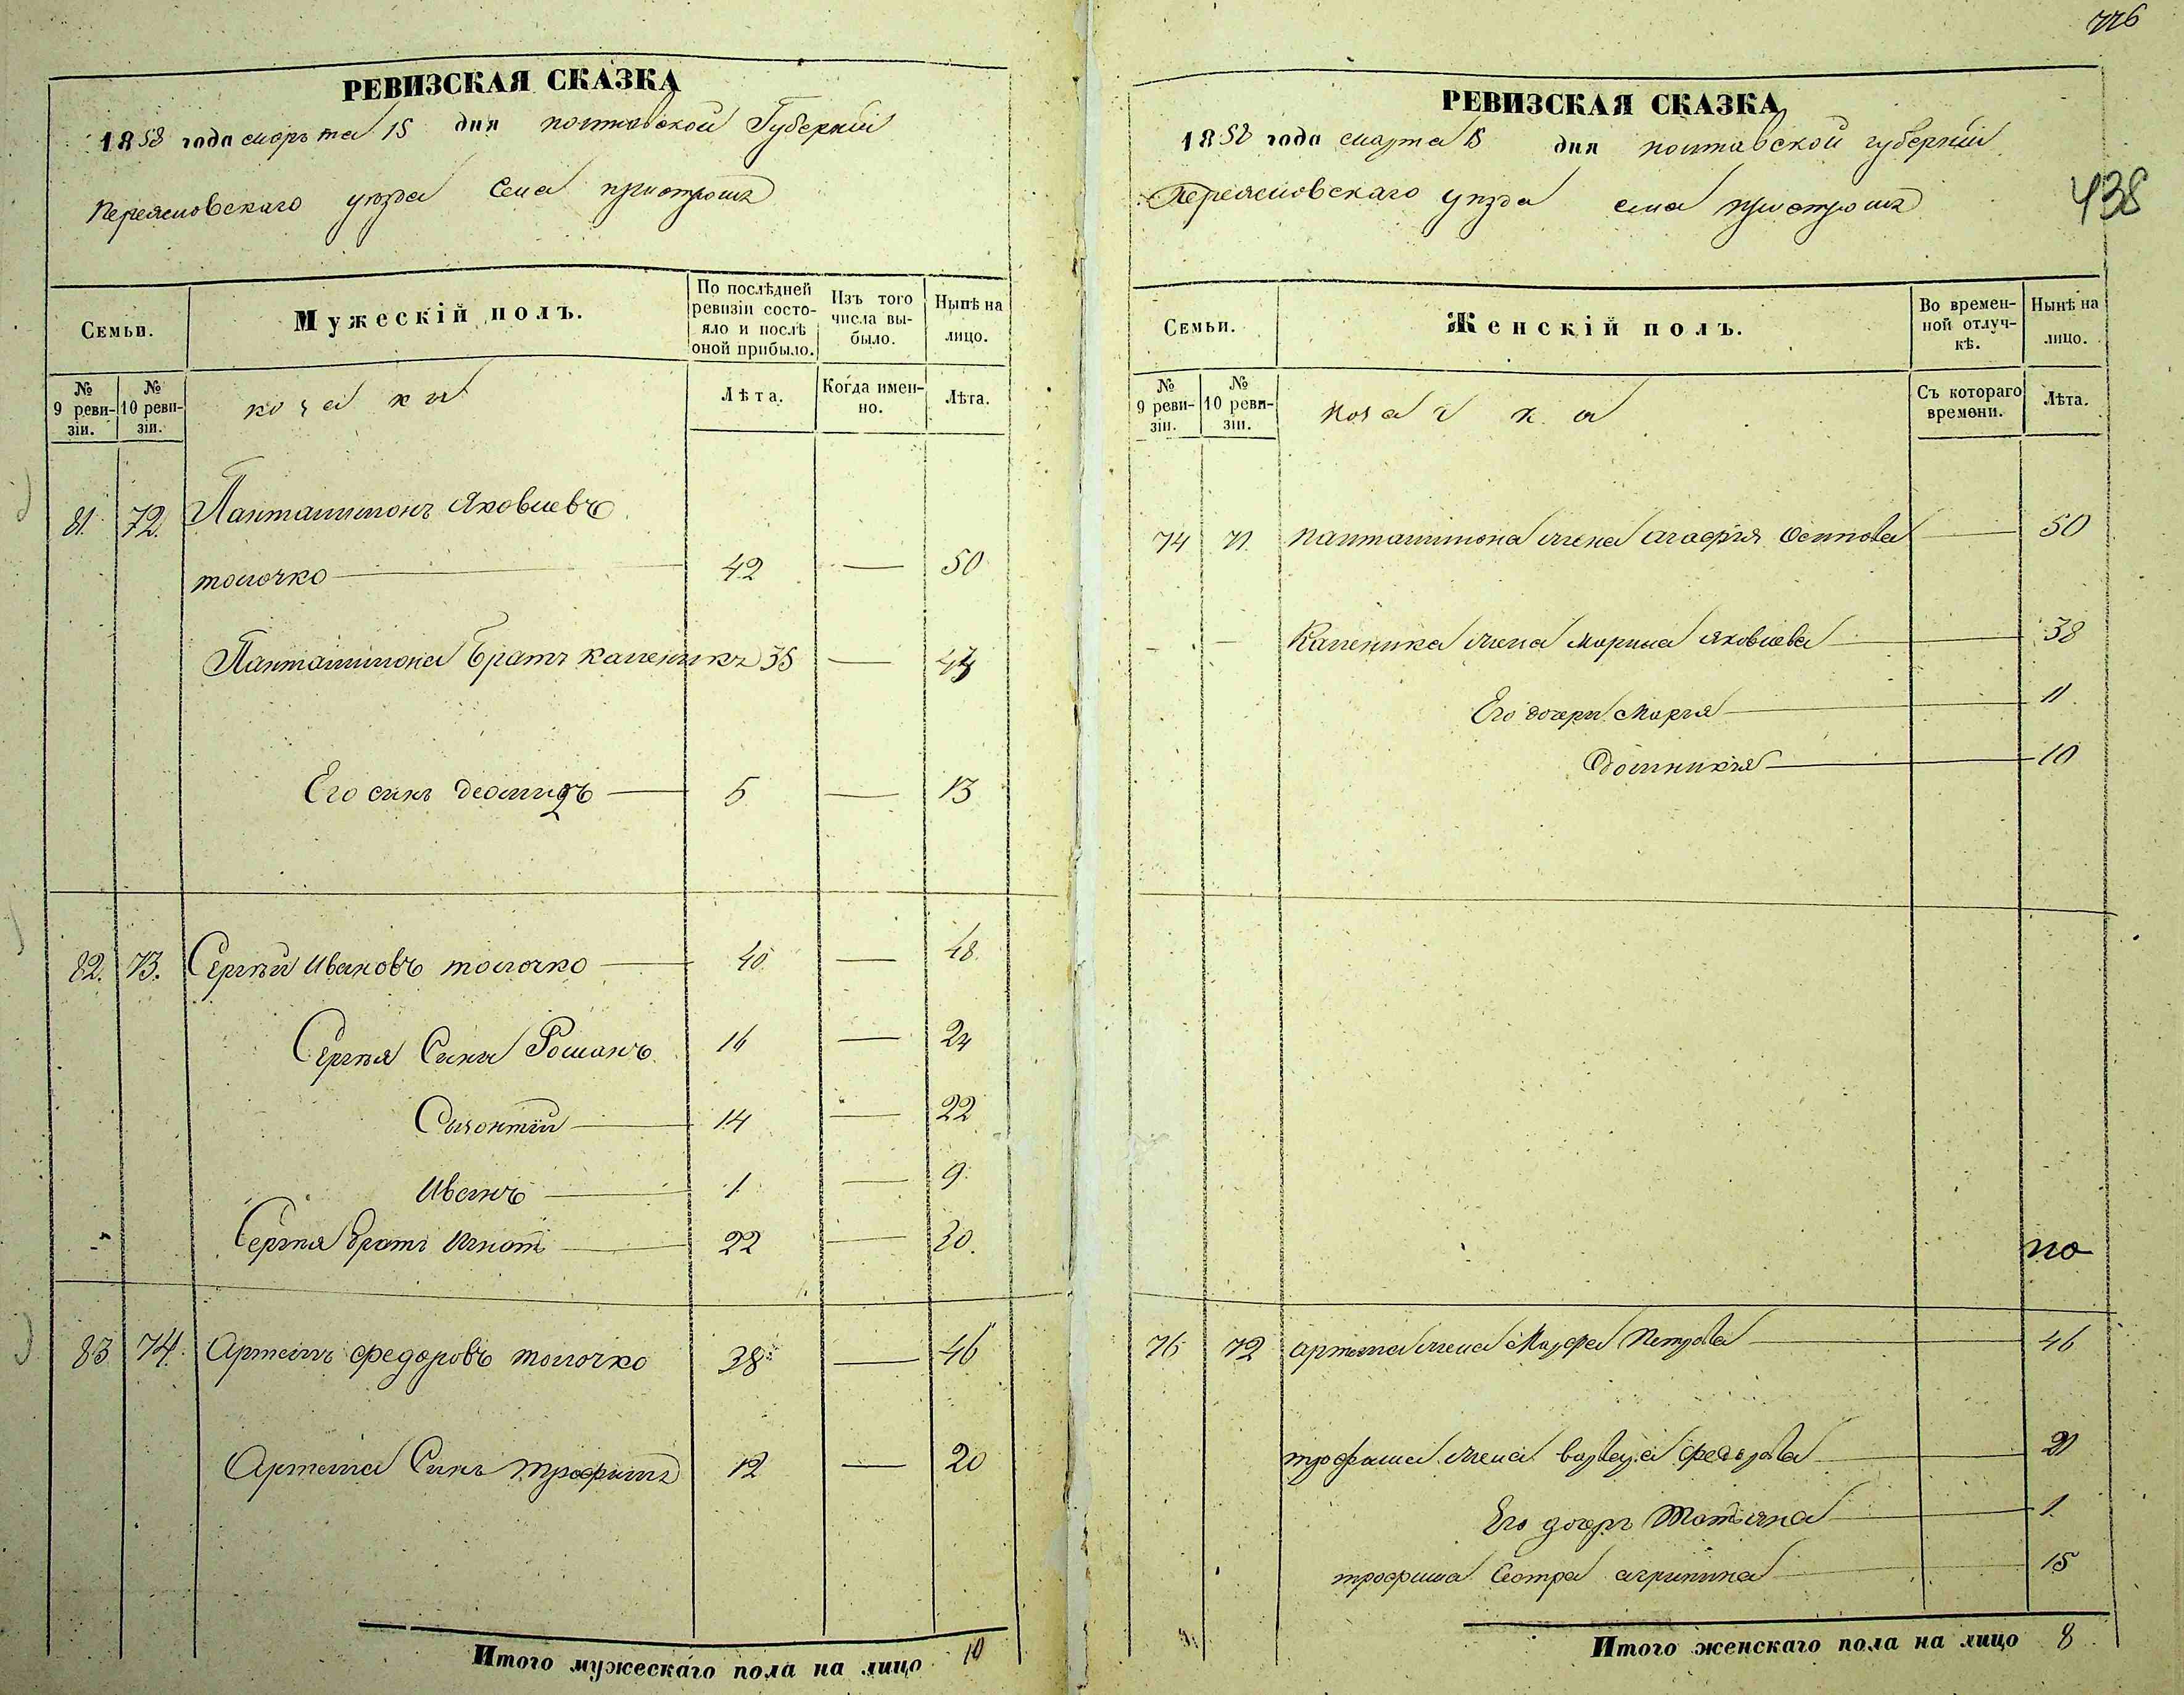 РЕВИЗСКАЯ СКАЗКА
1858 года марта 15 дня полтавской Губерніи
Переяславскаго уѣзда Села пристромъ
Семьи.
Мужескій полъ.
По послѣдней ревизіи состояло и послѣ оной прибыло.
Изъ того числа выбыло.
Нынѣ на лицо.
№ 9 ревизіи.
№ 10 ревизіи.
козаки
Лѣта.
Когда именно.
Лѣта.
81. 72. Панталимонъ Яковлевъ
толочко 42 — 50
Панталимона Братъ каленикъ 35 — 43
Его синъ деомидъ 5 — 13
82. 73. Сергѣй Ивановъ толочко 40 — 48
Сергѣя Сини Романъ 16 — 24
14 — 22
Иванъ 1 — 9
Сергѣя братъ Игнатъ 22 — 30.
83 74. Артемъ федоровъ толочко 38 — 46
Артема Синъ трофимъ 12 — 20
Итого мужескаго пола на лицо 10
776
438
РЕВИЗСКАЯ СКАЗКА
1858 года марта 15 дня полтавской губерніи
Переяславскаго уѣзда села пристромъ
Семьи.
Женскій полъ.
Во временной отлучкѣ.
Нынѣ на лицо.
№ 9 ревизіи.
№ 10 ревизіи.
Съ котораго времени.
Лѣта.
74 71. панталимона жена агафія Осипова — 50
Каленика жена Марина яковлева — 38
Его дочери Марія — 11
домникія — 10
по
76 72 артема жена Марфа Петрова — 46
трофима жена варвара федорова — 21
Его дочерь Татіяна — 1.
трофима Сестра агрипина — 15
Итого женскаго пола на лицо 8